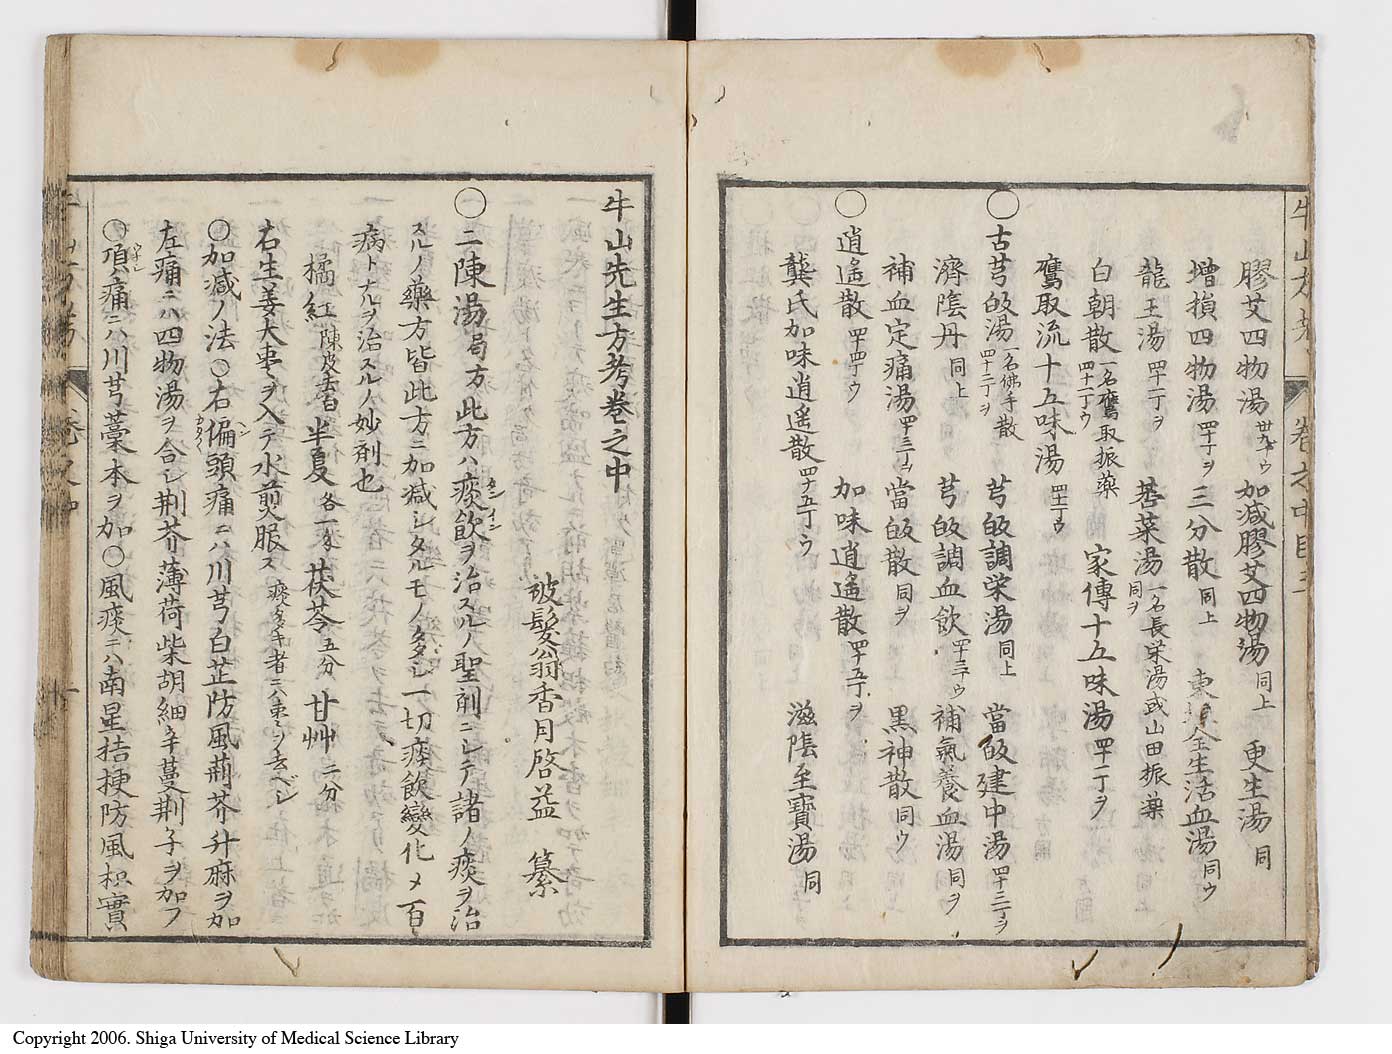 膠艾四物湯 卅九丁ウ 加減膠艾四物湯 同上 更生湯 同
増損四物湯 四十丁ヲ 三分散 同上 東垣全生活血湯 同ウ
龍王湯 四十一丁ヲ 莟菜湯 一名長栄湯或山田振薬 同ヲ
白朝散 一名鷹取振薬 四十一丁ウ 家傳十五味湯 四十二丁ヲ
鷹取流十五味湯 四十二丁ウ
〇古芎皈湯 一名佛手散 四十三丁ヲ 芎皈調栄湯 同上 當皈建中湯 四十三丁ヲ
濟陰丹 同上 芎皈調血飲 四十三丁ウ 補氣養血湯 同ヲ
補血定痛湯 四十三丁ウ 當皈散 同ヲ 黒神散 同ウ
〇逍遙散 四十四丁ウ 加味逍遙散 四十五丁ヲ 滋陰至寶湯 同
龔氏加味逍遥散 四十五丁ウ
牛山方考 卷之中目 三
牛山先生方考卷之中
被髮翁香月啓益 纂
〇二陳湯 局方 此方ハ痰飲ヲ治スルノ聖剤ニシテ諸ノ痰ヲ治
スルノ藥方皆此方ニ加減シタルモノ多シ一切痰飲變化〆百
病トナルヲ治スルノ妙剤也
橘紅 陳皮 半夏 各一 茯苓 五分 甘艸 二分
右生姜大棗ヲ入テ水煎服ス 痰多キ者ニハ棗ヲ去ベシ
〇加減ノ法〇右偏頭痛ニハ川芎白芷防風荊芥升麻ヲ加
左痛ニハ四物湯ヲ合シ荊芥薄荷柴胡細辛蔓荊子ヲ加フ
〇項痛ニハ川芎藁本ヲ加〇風痰ニハ南星桔梗防風枳實
牛山方考 卷之中 一
Copyright 2006. Shiga University of Medical Science Library